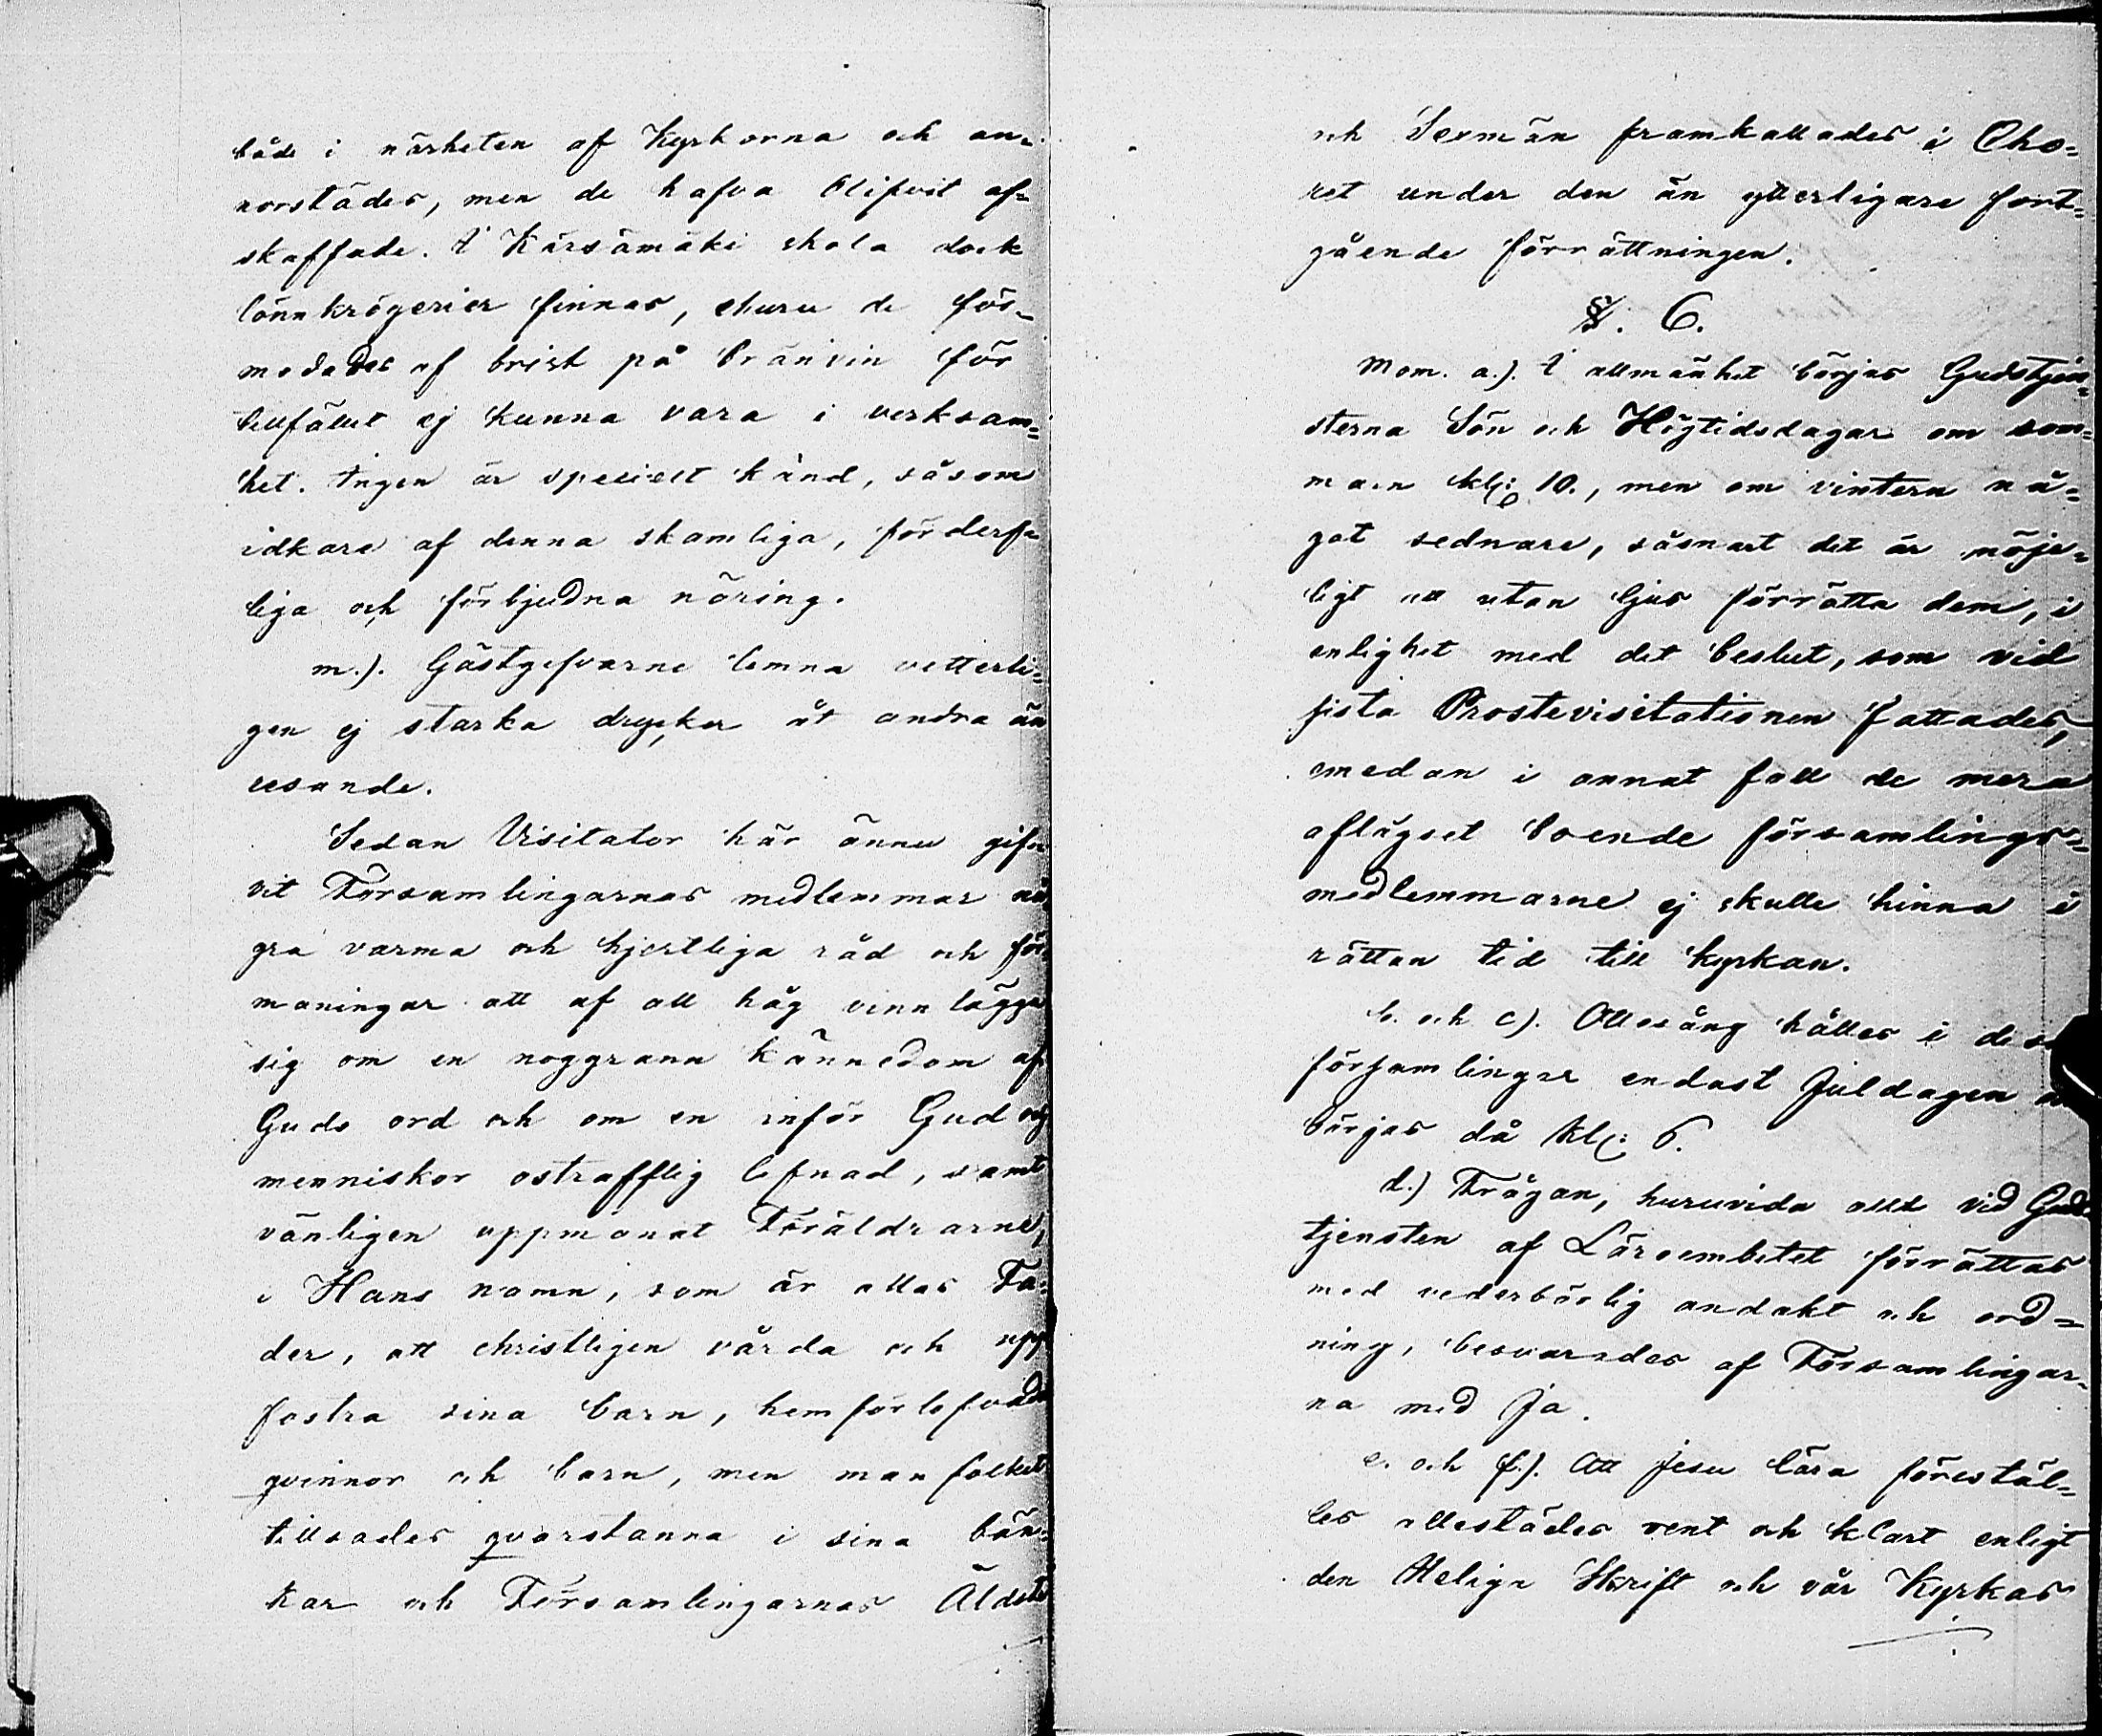 både i närheten af Kyrkorna och an-
norstädes, men de hafva blifvit af-
skaffade. I Kärsämäki skola dock
lönnkrögerier finnas, ehuru de för-
modades af brist på bränvin för
tillfället ej kunna vara i verksam=
het. Ingen är specielt känd, såsom
idkare af denna skamliga, förderf-
liga och förbjudna näring.
m.). Gästgifvarne lemna vetterli=
gen ej starka drycker åt andra än
resande.
Sedan Visitator här ännu gif-
vit Församlingarnas medlemmar nå
gra varma och hjertliga råd och för-
maningar att af all håg vinnlägga
sig om en noggrann kännedom af
Guds ord och om en inför Gud och
menniskor ostrafflig lefnad, samt
vänligen uppmanat Föräldrarne,
i Hans namn, som är allas Fa-
der, att christligen vårda och upp
fostra sina barn, hemförlofvades
qvinnor och barn, men manfolket
tillsades qvarstanna i sina bän-
kar och Församlingarnas Äldste
och Sexmän framkallades i Cho=
ret under den än ytterligare fort=
gående förrättningen.
§. 6.
Mom. a.). I allmänhet börjas Gudstjen=
sterna Sön och Högtidsdagar om som=
maren kl: 10., men om vintern nå=
got sednare, såsnart det är möje=
ligt att utan ljus förrätta dem, i
enlighet med det beslut, som vid
sista Prostevisitationen fattades,
emedan i annat fall de mera
aflägset boende församlings=
medlemmarne ej skulle hinna i
rättan tid till kyrkan.
b. och c). Ottesång hålles i dessa
församlingar endast Juldagen
börjas då kl: 6.
d.) Frågan, huruvida allt vid Guds
tjensten af Läroembetet förrättas
med vederbörlig andakt och ord=
ning, besvarades af Församlingar-
na med Ja.
e. och f.). Att Jesu lära förestäl=
les allestädes rent och klart enligt
den Heliga Skrift och vår Kyrkas